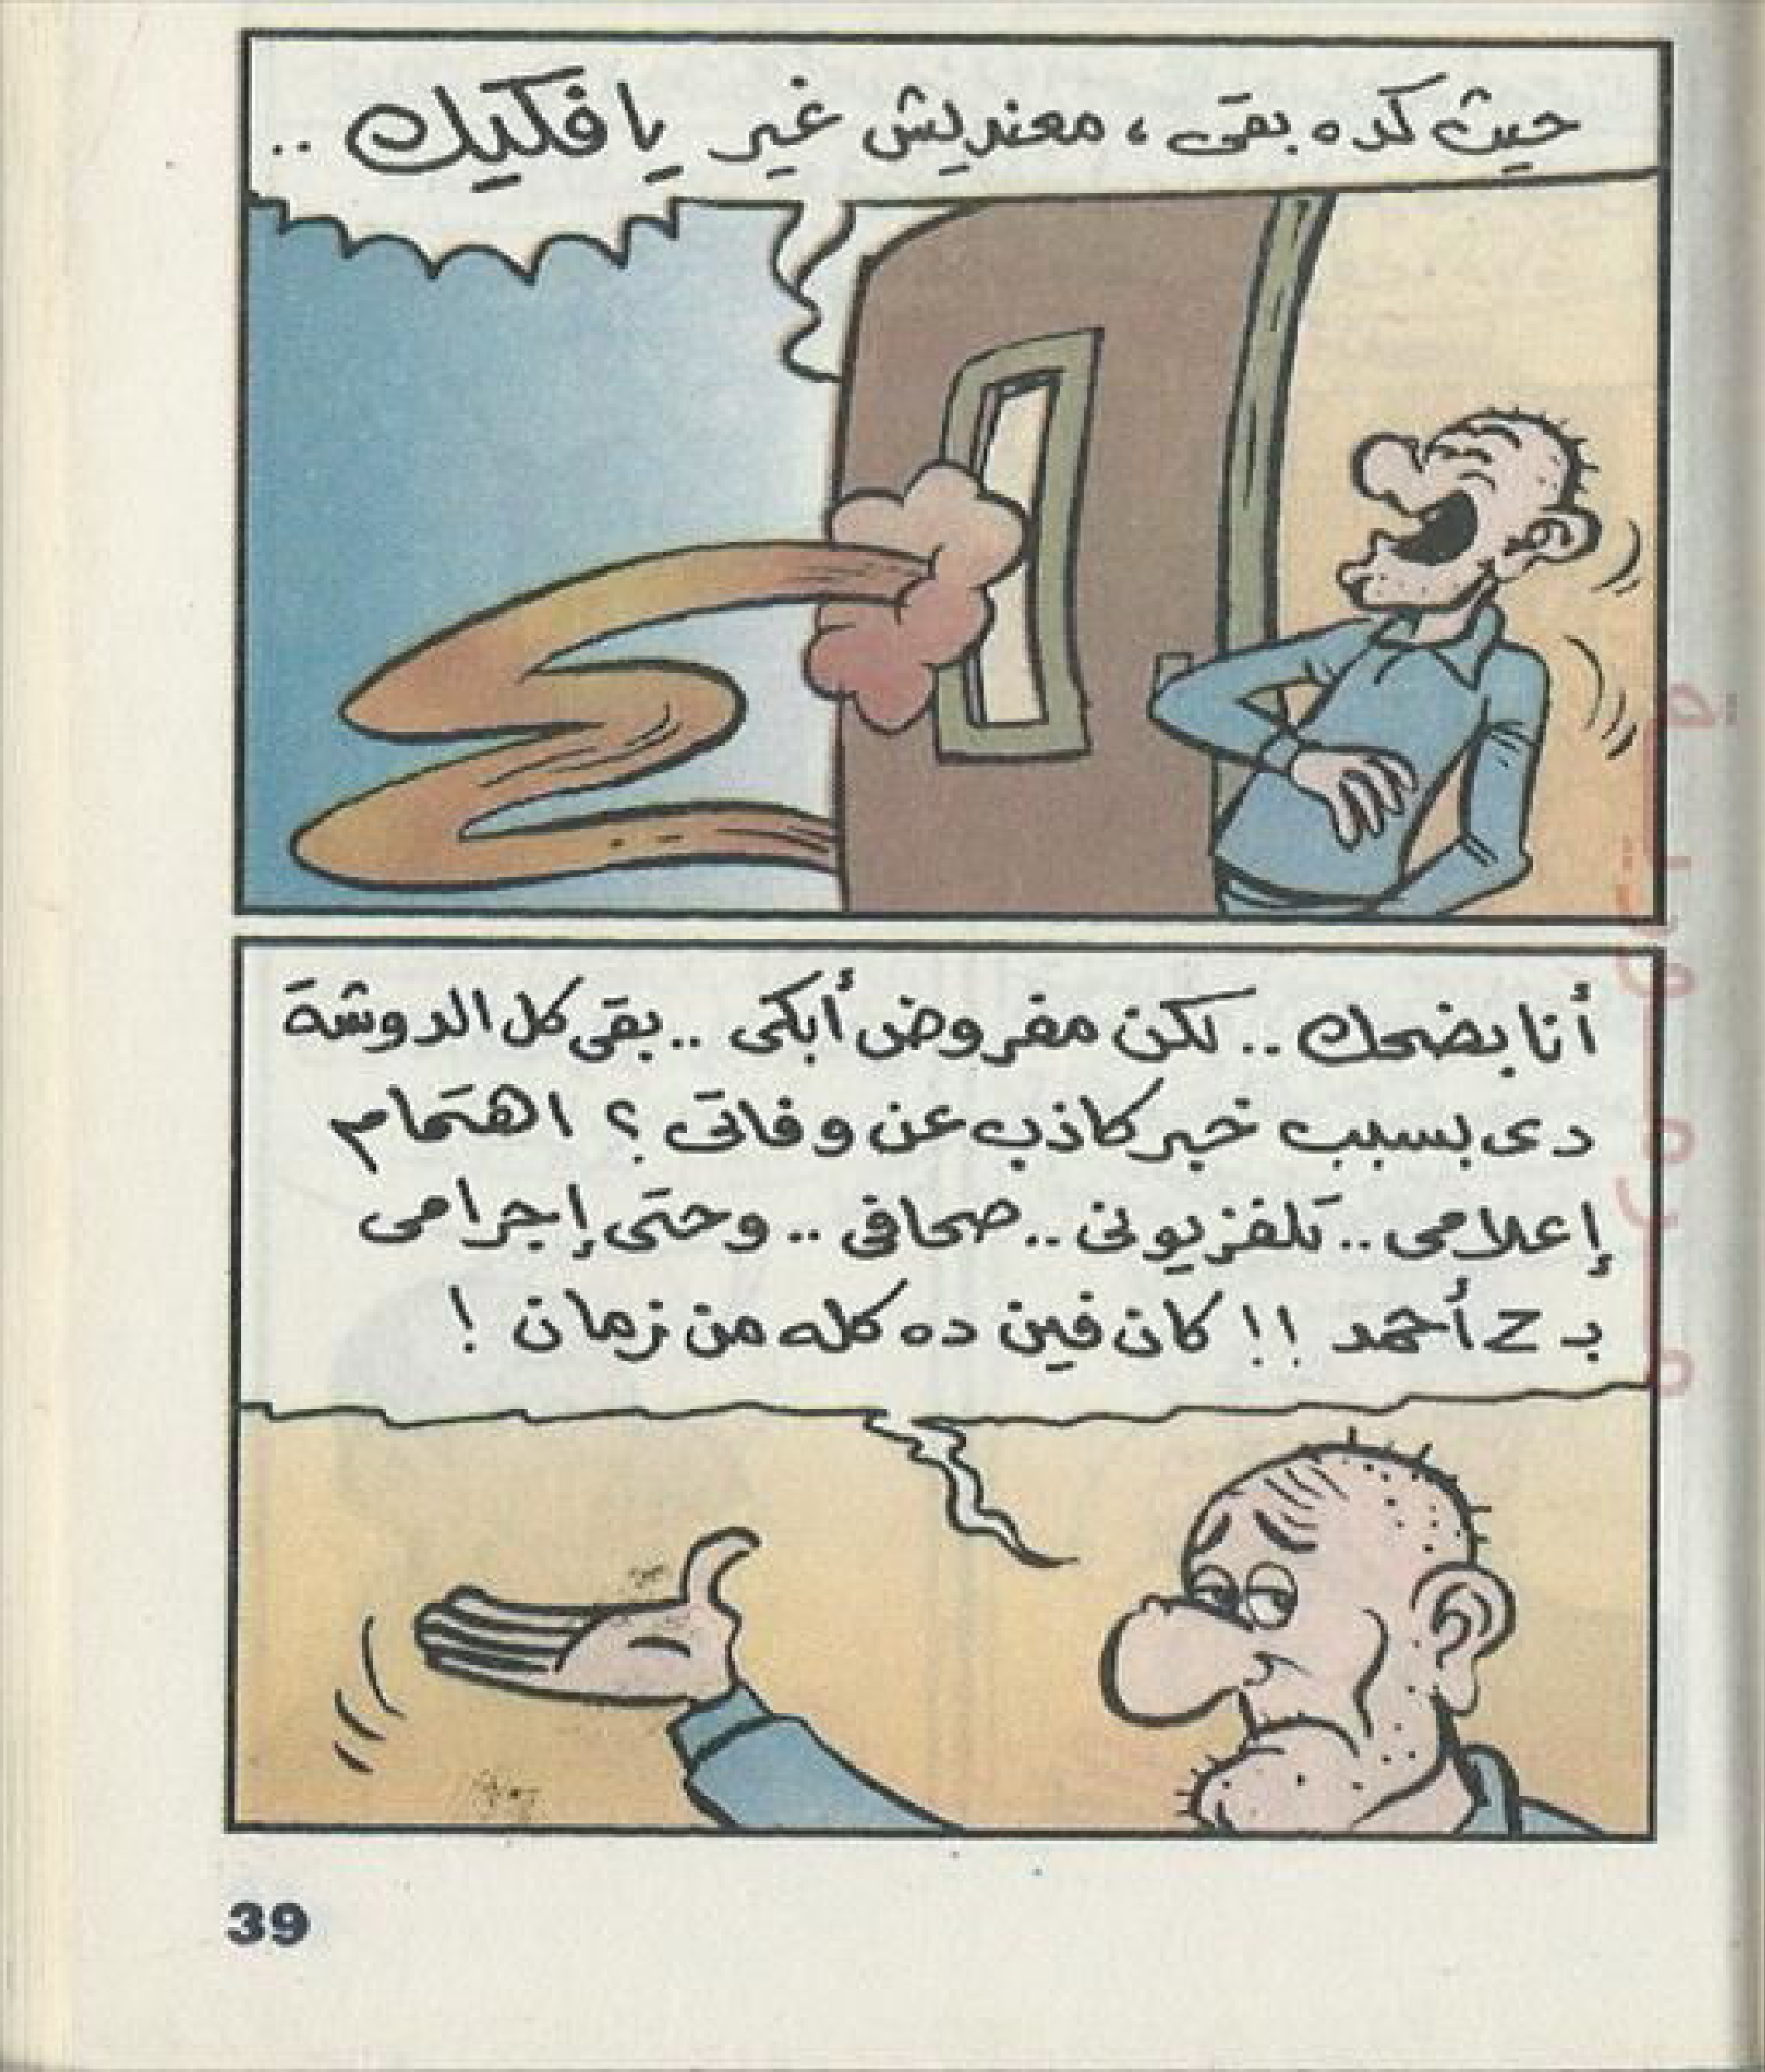 حيث كده بقى، معنديش غير يا فكيك ..
أنا بضحك .. لكن مفروض أبكى .. بقى كل الدوشة
دى بسبب خبر كاذب عن وفاتى ؟ اهتمام
إعلامى .. تلفزيونى .. صحافى .. وحتى إجرامى
بـ z أحمد !! كان فين ده كله من زمان !
39